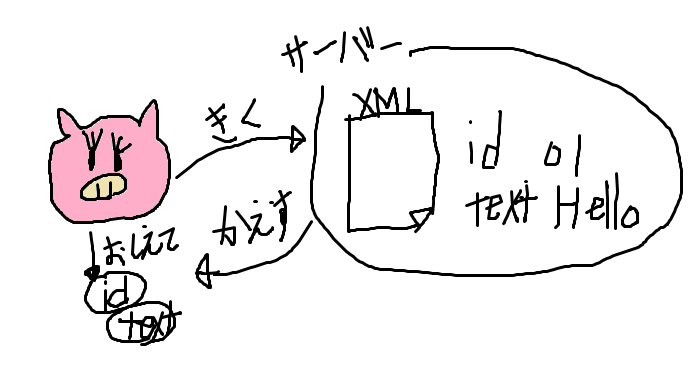 サーバー
きく
XML
id 01
text Hello
かえす
おしえて
id
text